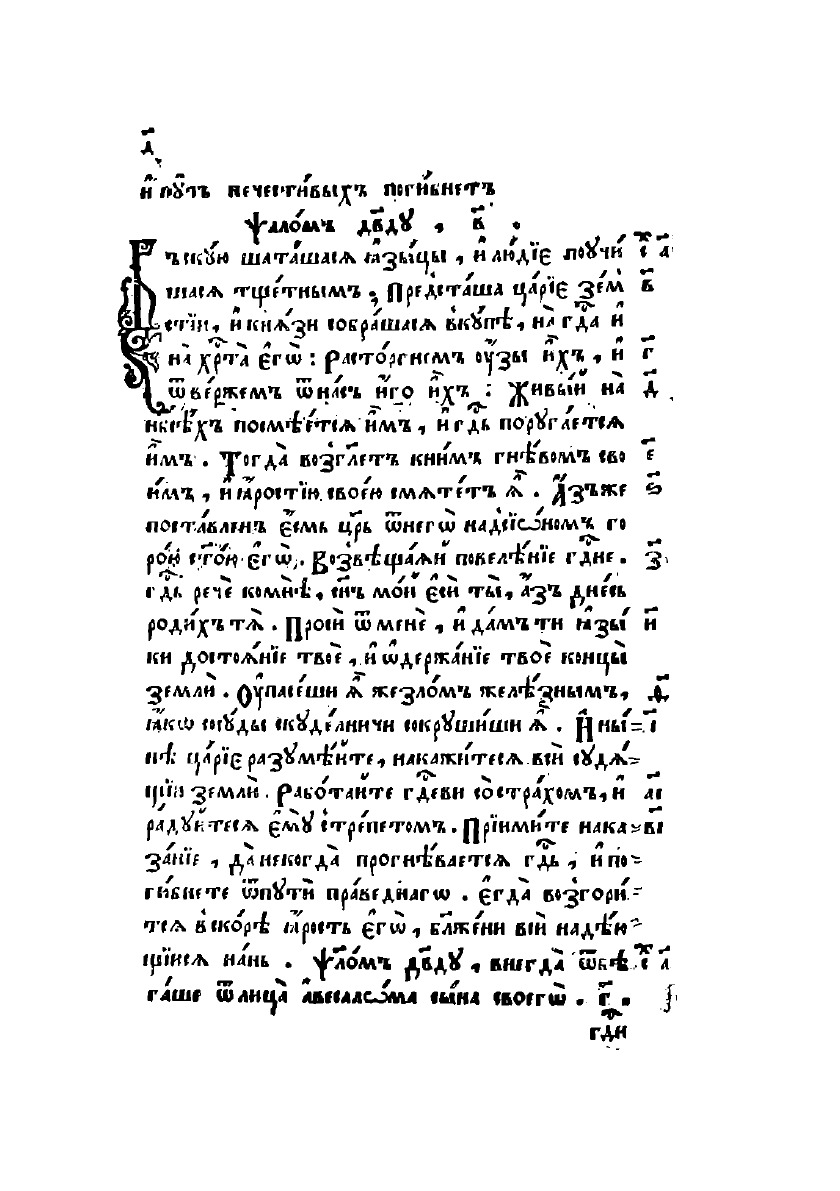 д҃
и҆ пꙋ́ть нечести́выхъ поги́бнетъ
ѱало́мъ дв҃дꙋ , в҃ .
Въскꙋ́ю шата́шасѧ ꙗ҆зы́цы , и҆ лю́дїє поꙋчи́ ст҃х а҃
шасѧ тщє́тнымъ , Предста́ша ца́рїє зє́м в҃
стїи , и҆ кнѧ́зи собра́шасѧ вкꙋ́пѣ , на̀ гд҇а и҆
на̀ хрⷭ҇та̀ є҆гѡ̀ : Расто́ргнемъ оу҆́зы и҆́хъ , и҆ г҃
ѿве́ржемъ ѿна́съ и҆́го и҆́хъ : Живы́й на̀ д҃
нб҃сѣ́хъ посмѣє́тсѧ и҆̀мъ , и҆ гд҇ь порꙋга́етсѧ
и҆̀мъ . Тогда̀ возгл҃етъ кни́мъ гнѣ́вомъ сво є҃
и́мъ , и҆ ꙗ҆́ростїю своє́ю смѧте́тъ ѧ҆̀ . А҆́зъже ѕ҃
поста́вленъ є҆́смь цр҃ь ѿнегѡ̀ надсїѡ́номъ го
ро́ю ст҃о́ю є҆гѡ̀ . Возвѣща́ѧй повелѣ́нїе гд҇не . з҃
гд҇ь речѐ комнѣ̀ , сн҃ъ мо́й є҆сѝ ты̀ , а҆́зъ дне́сь
роди́хъ тѧ̀ . Просѝ ѿ менѐ , и҆ да́мъ ти ꙗ҆зы́ и҃
ки достоѧ́нїе твоѐ , и҆ ѡ҆держа́нїе твоѐ концы̀
землѝ . Оу҆пасе́ши ѧ҆̀ жезло́мъ желѣ́знымъ , ѳ҃
ꙗ҆́кѡ сосꙋ́ды скꙋде́лничи сокрꙋши́ши ѧ҆̀ . И҆ ны́= і҃
нѣ ца́рїє разꙋмѣ́йте , накажи́тесѧ всѝ сꙋдѧ́=
щїи землѝ . Рабо́тайте гд҇еви состра́хомъ , и҆ а҃і
ра́дꙋйтесѧ є҆мꙋ̀ стре́петомъ . Прїими́те нака= в҃і
за́нїе , да̀ некогда̀ прогнѣ́ваетсѧ гд҇ь , и҆ по=
ги́бнете ѿпꙋтѝ пра́веднагѡ . є҆гда̀ возгори́=
тсѧ вско́рѣ ꙗ҆́рость є҆гѡ̀ , бл҃же́ни всѝ надѣ́ю=
щїисѧ на́нь . Ѱл҃о́мъ дв҃дꙋ , внегда̀ ѿбѣ= ст҃х а҃
га́ше ѿлица̀ а҆весалѡ́ма сы́на своегѡ̀ . г҃ .
гд҇и